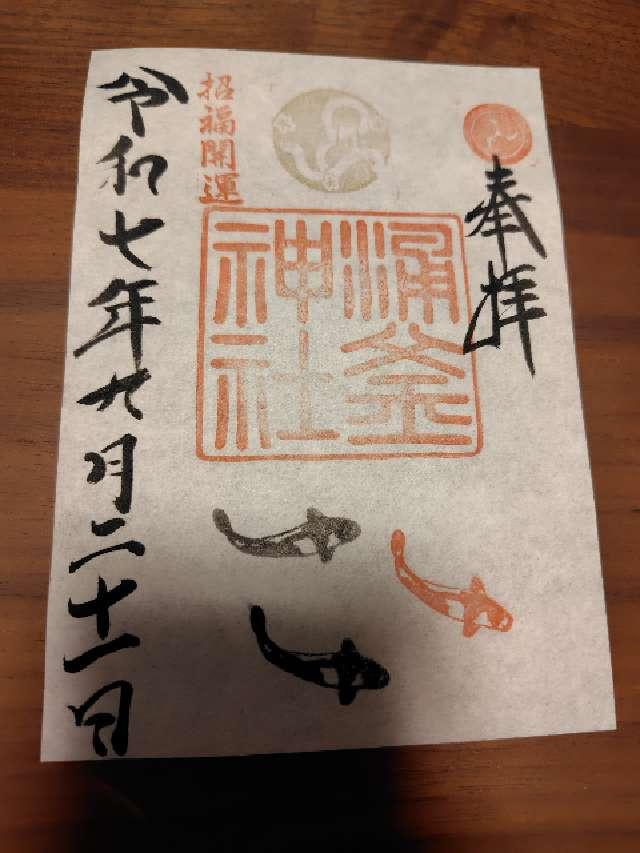 奉拝
涌釜
神社
招福開運
令和七年九月二十一日